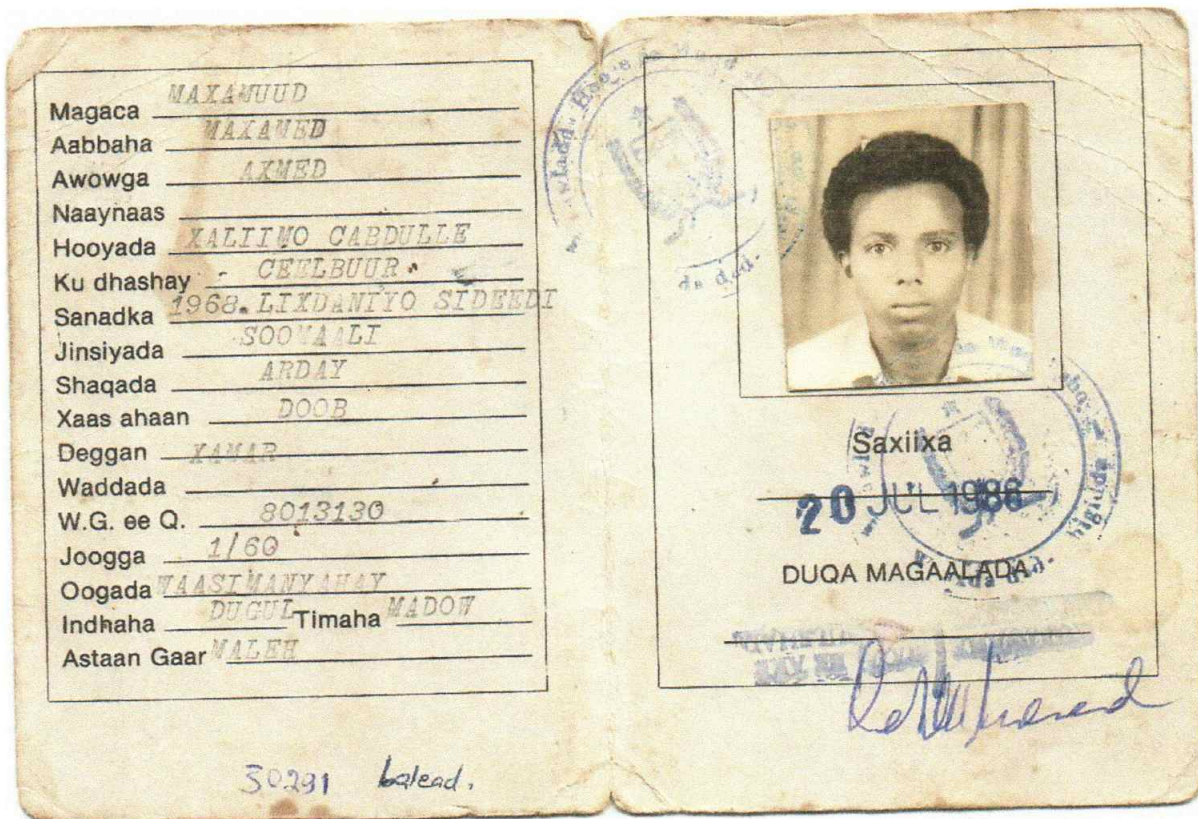 Magaca MAXAMUUD
Aabbaha MAXAMED
Awowga AXMED
Naaynaas
Hooyada XALIIMO CABDULLE
Ku dhashay CEELBUUR
Sanadka 1968. LIXDANIYO SIDEEDI
Jinsiyada SOOMAALI
Shaqada ARDAY
Xaas ahaan DOOB
Deggan XAMAR
Waddada
W.G. ee Q. 8013130
Joogga 1/60
Oogada MAASIMANYAHAY
Indhaha DUGUL Timaha MADOW
Astaan Gaar MALEH
30291 balead.
Saxiixa
20 JUL 1986
DUQA MAGAALADA